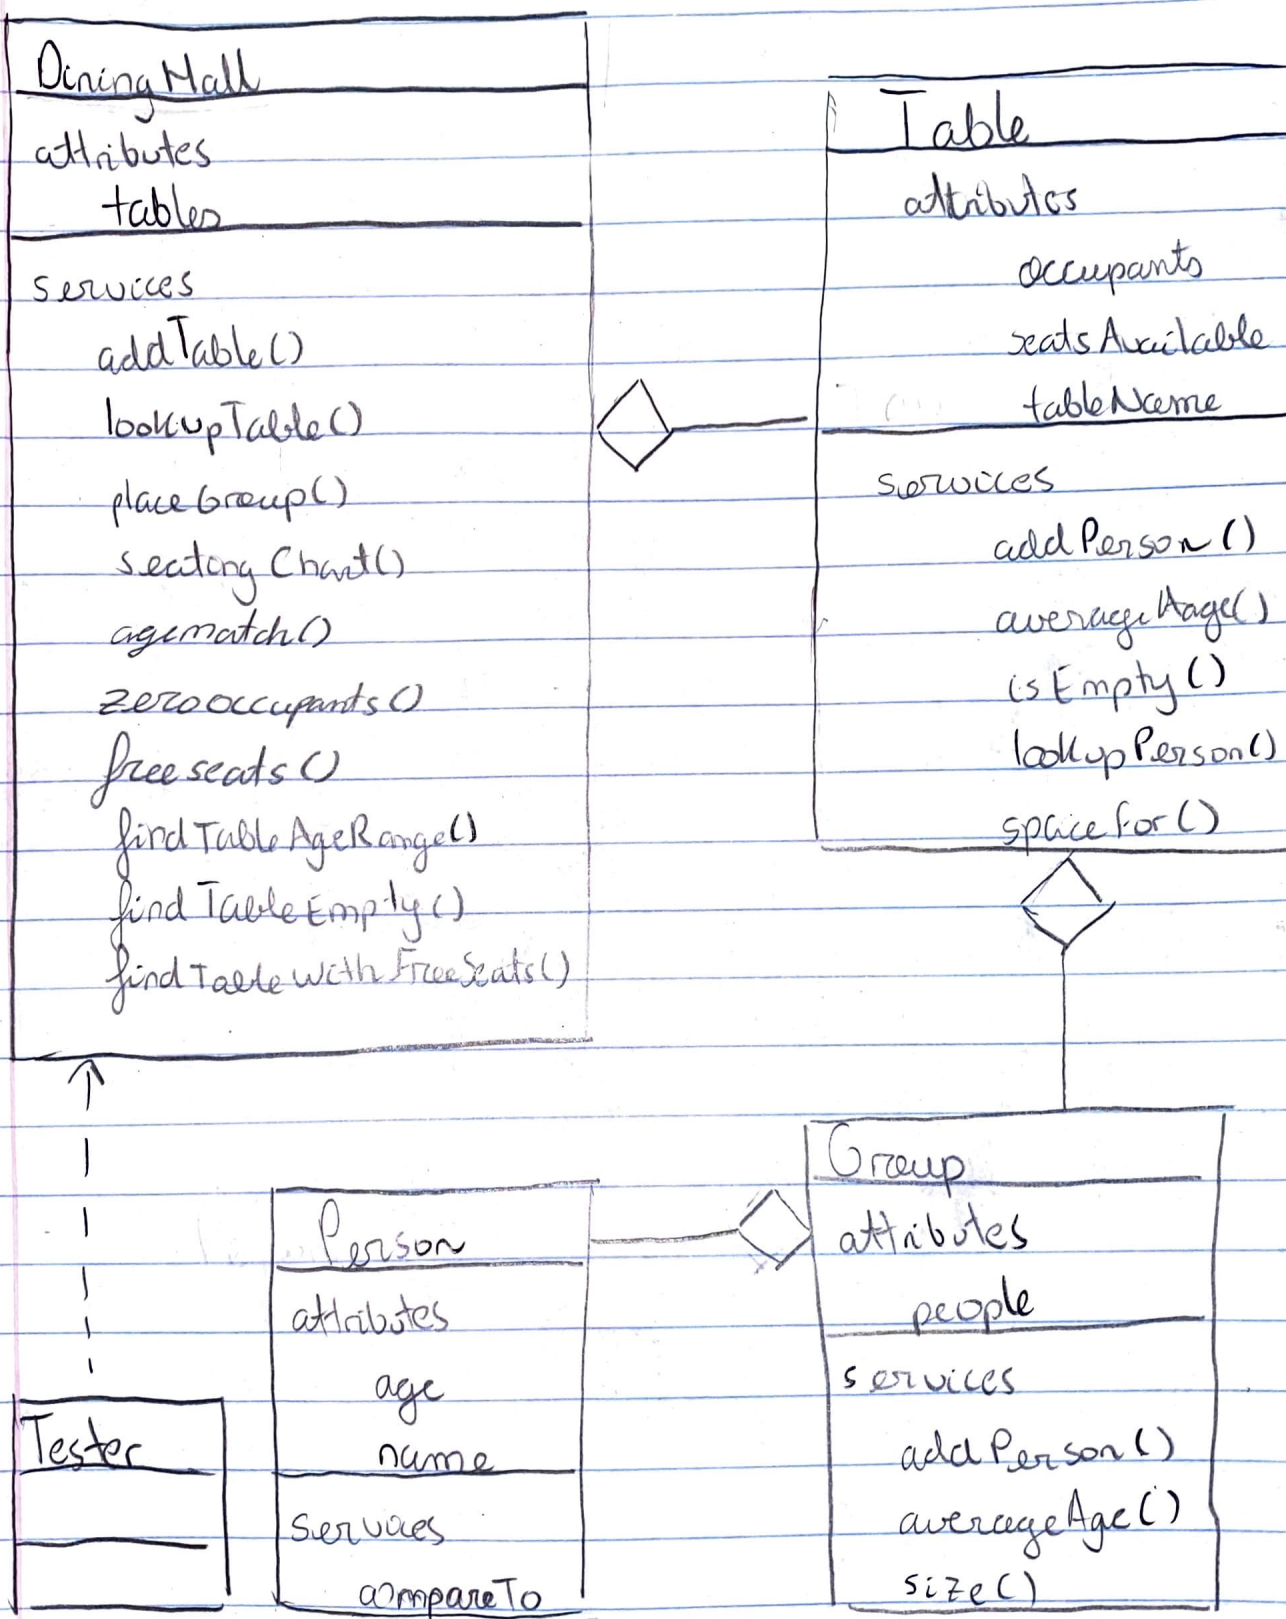 DiningHall
attributes
tables
services
addTable()
lookupTable()
placeGroup()
seatingChart()
agematch()
zerooccupants()
freeseats()
findTableAgeRange()
findTableEmpty()
findTableWithFreeSeats()
Table
attributes
occupants
seatsAvailable
tableName
services
addPerson()
averageAage()
isEmpty()
lookupPerson()
spaceFor()
Group
attributes
people
services
addPerson()
averageAge()
size()
Person
attributes
age
name
services
compareTo
Tester